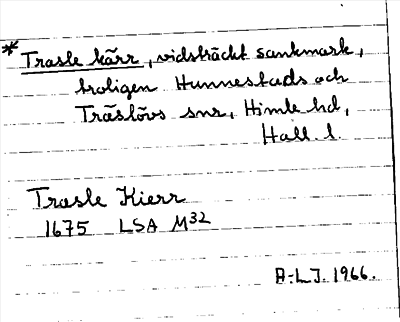 * Trasle kärr, vidsträckt sankmark,
troligen Hunnestads och
Träslövs snr, Himle hd,
Hall. l.
Trasle Kierr
1675 LSA M32
B-L J. 1966.